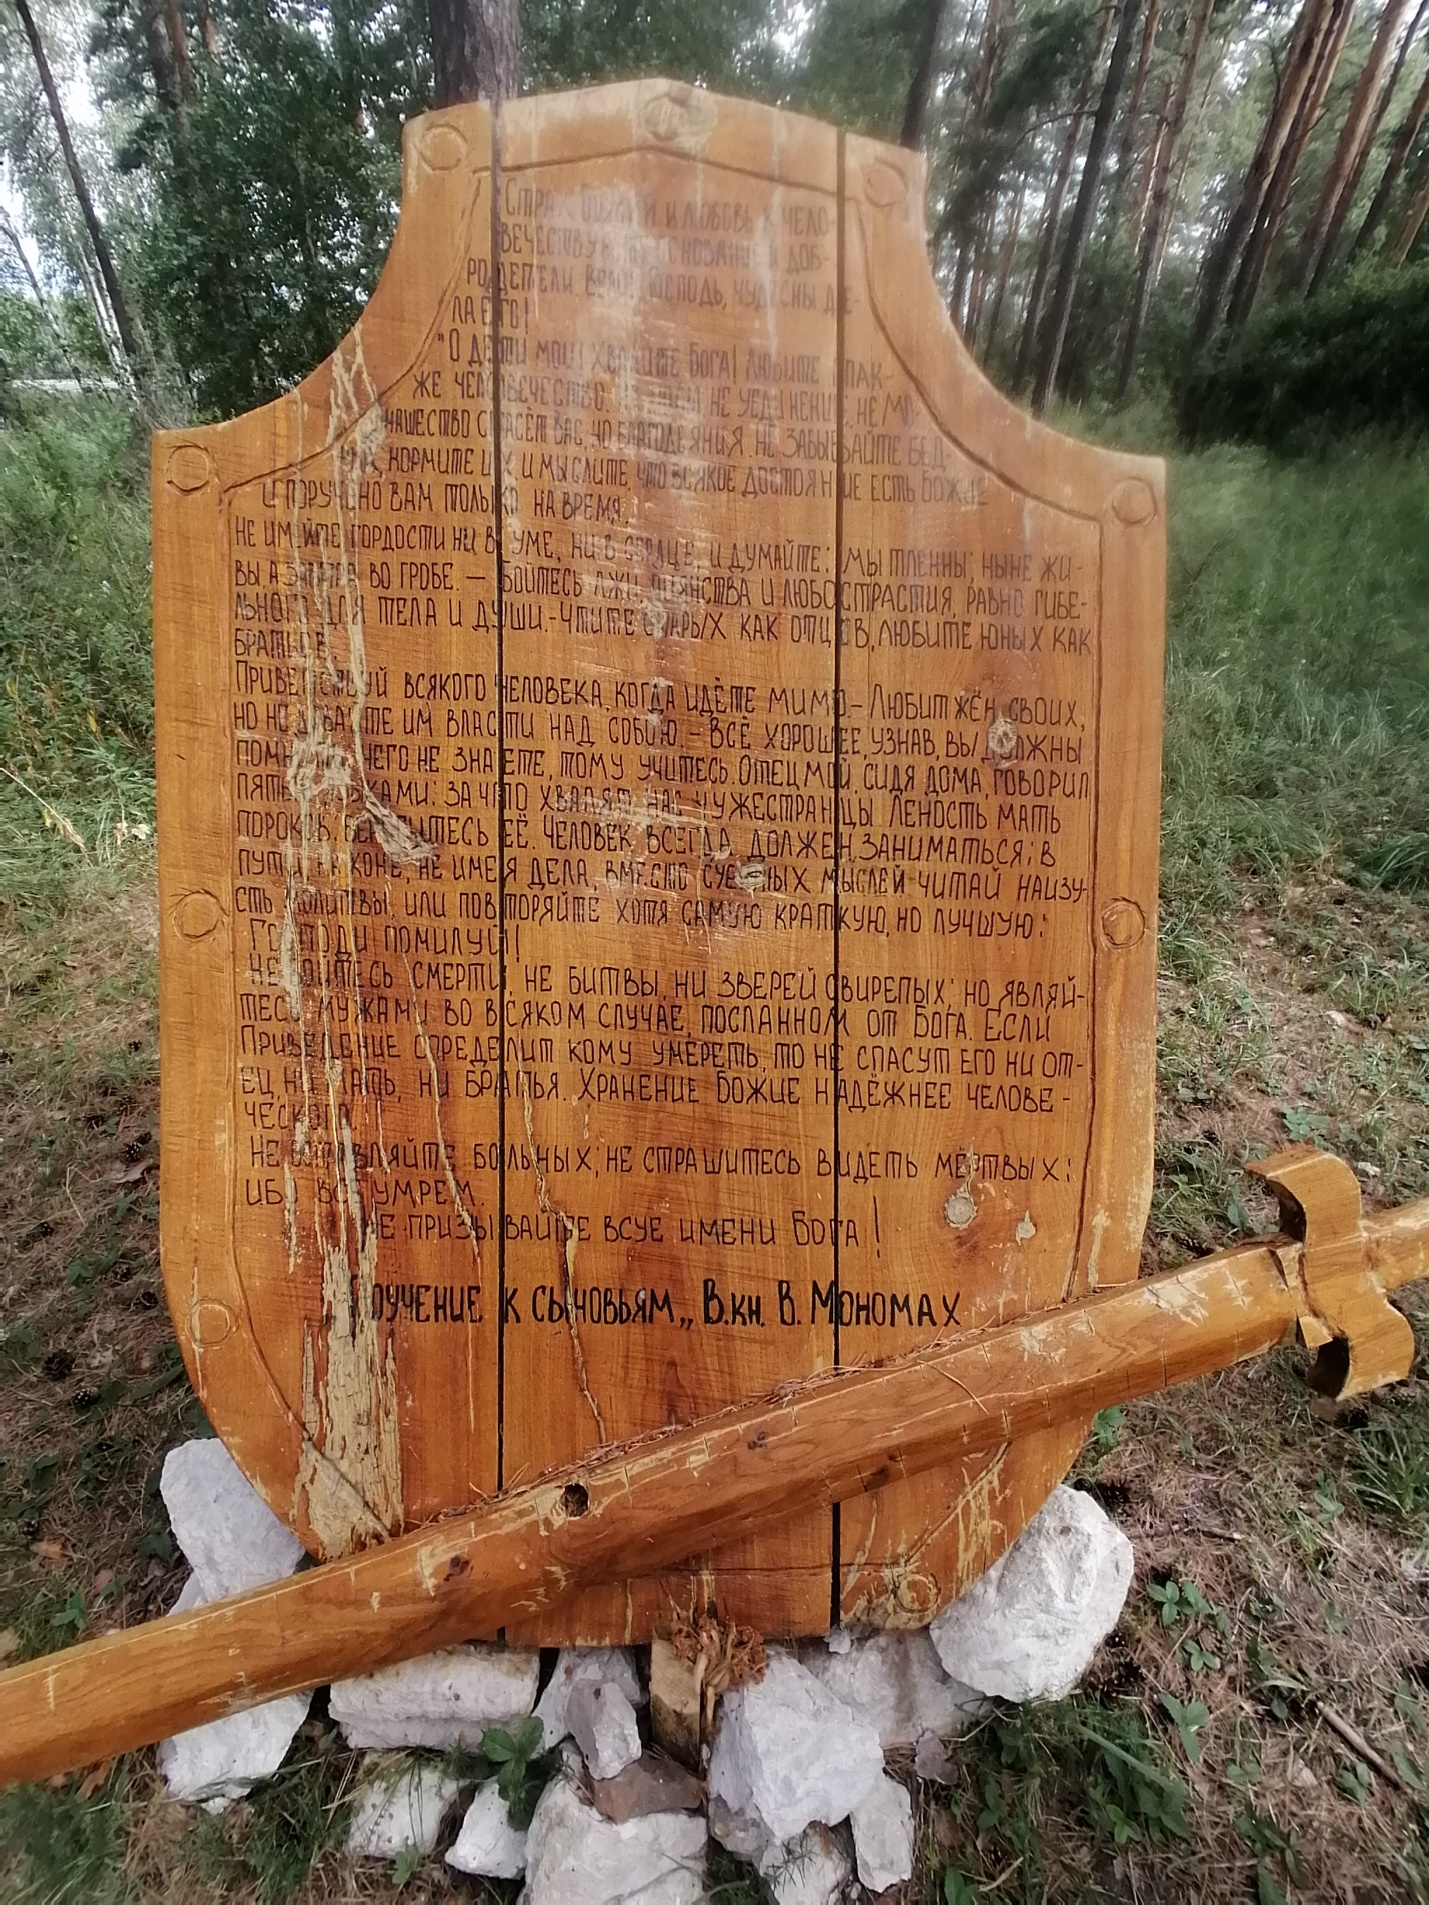 Страх Божий и любовь к чело-
вечеству есть основание доб-
родетели. Велик Господь, чудесны де-
ла Его!
"О дети мои! Хвалите Бога! Любите так-
же человечество. Не пост, не уединение, не мо-
нашество спасёт вас, но благодеяния. Не забывайте бед-
ных, кормите их, и мыслите, что всякое достояние есть Божие
и поручено вам только на время.
Не имейте гордости ни в уме, ни в сердце, и думайте: мы тленны; ныне жи-
вы а завтра во гробе. - Бойтесь лжи, пьянства и любострастия, равно гибе-
льного для тела и души. - Чтите старых как отцов, любите юных как
братьев.
Приветствуй всякого человека, когда идёте мимо. - Любит жён своих,
но не давайте им власти над собою. - Всё хорошее, узнав, вы должны
помнить, чего не знаете, тому учитесь. Отец мой, сидя дома, говорил
пятью языками: за что хвалят нас чужестранцы Леность мать
пороков, берегитесь её. Человек всегда должен заниматься; в
пути, на коне, не имея дела, вместо суетных мыслей читай наизу-
сть молитвы, или повторяйте хотя самую краткую, но лучшую:
Господи помилуй!
Не бойтесь смерти, не битвы, ни зверей свирепых; но являй-
тесь мужами во всяком случае, посланном от Бога. Если
Приведение определит кому умереть, то не спасут его ни от-
ец, ни мать, ни братья. Хранение Божие надёжнее челове-
ческого.
Не оставляйте больных; не страшитесь видеть мёртвых:
ибо все умрем.
Не призывайте всуе имени Бога!
Поучение к сыновьям„ В.кн. В. Мономах